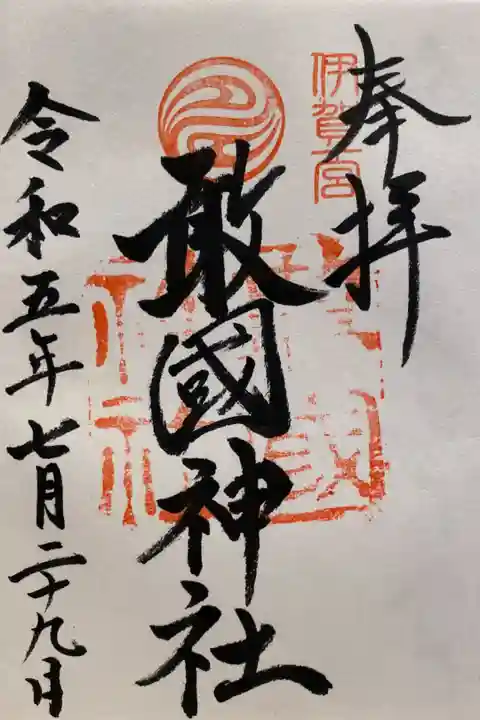 奉拝
伊賀一宮
敢國神社
令和五年七月二十九日